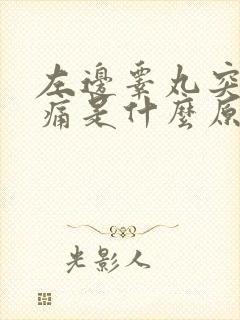 左邊睪丸突
痛是什麼原
光影人